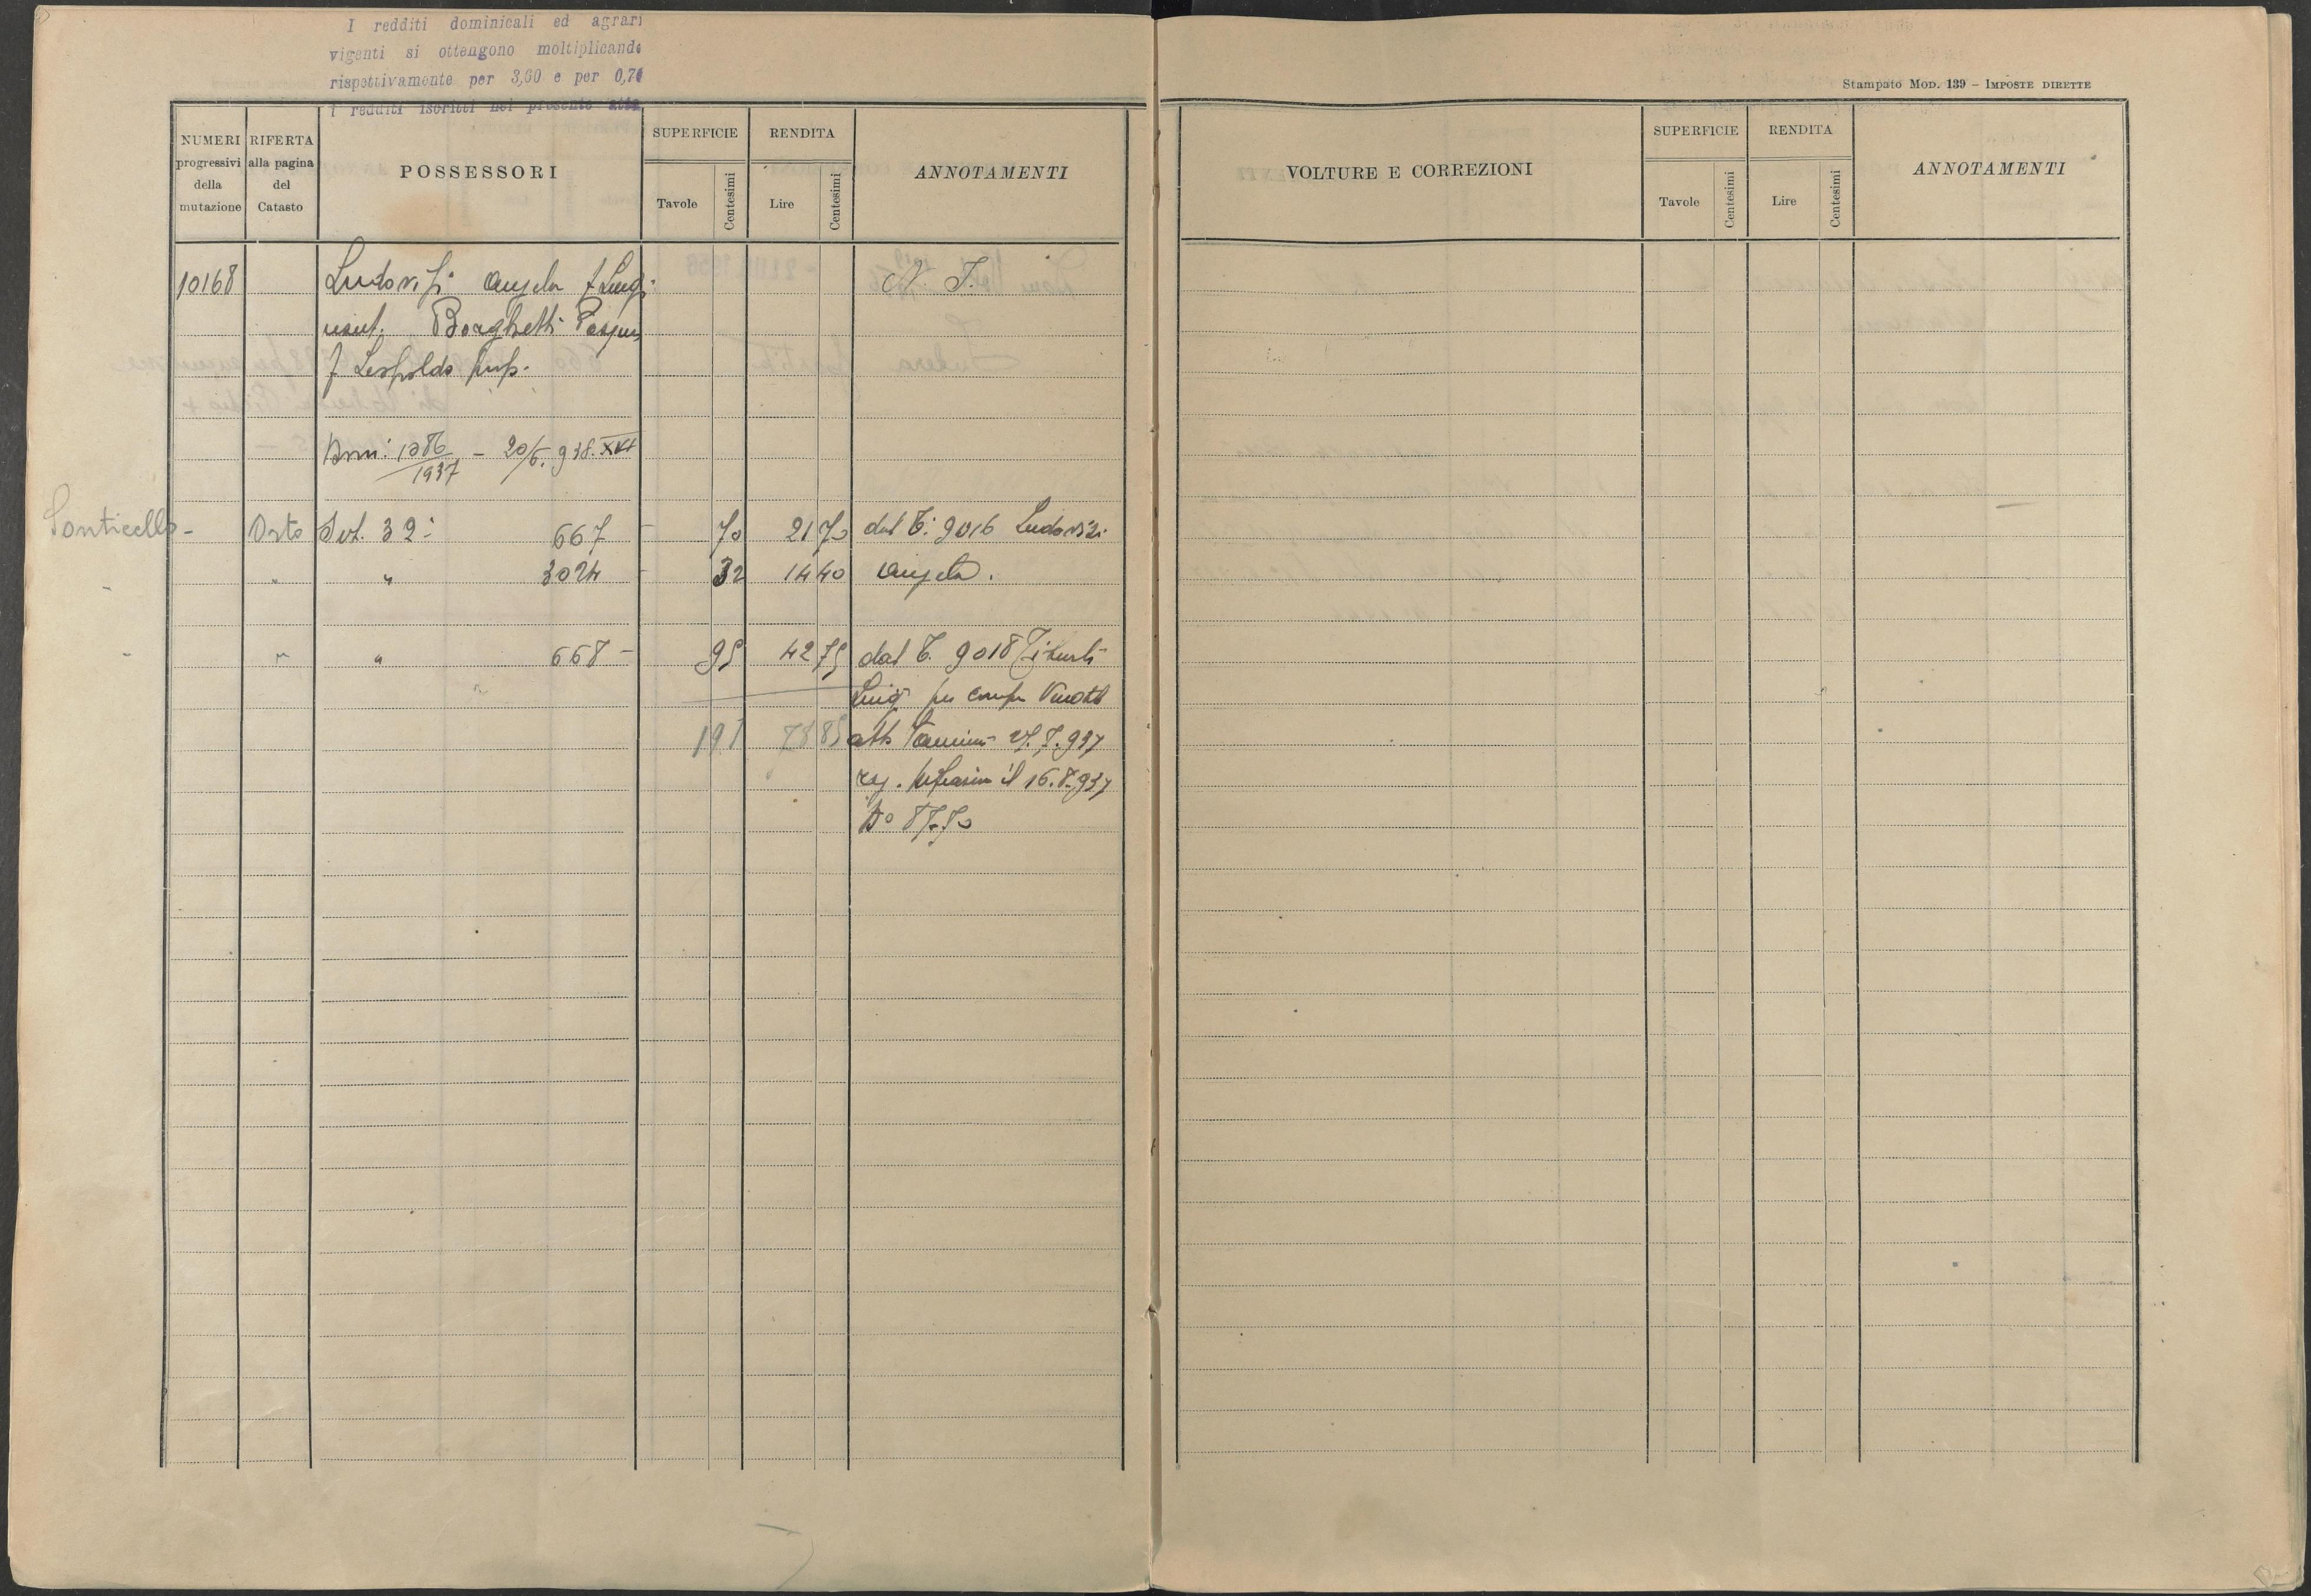 I redditi dominicali ed agrari
vigenti si ottengono moltiplicando
rispettivamente per 3,60 e per 0,7
i redditi iscritti nel presente atto
NUMERI progressivi della mutazione
RIFERTA alla pagina del Catasto
POSSESSORI
SUPERFICIE
Tavole
Centesimi
RENDITA
Lire
Centesimi
ANNOTAMENTI
10168
Ludovisi Angela f Luigi
N. I.
usuf. Borghetti
f Leopoldo prop.
1286/1937 - 20/6. 938. XVI
Ponticello - Orto Sut. 32: 667 - 70 21 70 dal T: 9016 Ludovisi
" " 3024 - 32 14 40 Angela.
" " 668 - 95 42 75 dal T. 9018
Luigi per
197 78 85 atto 937
reg. il 16.8.937
No
Stampato MOD. 139 – IMPOSTE DIRETTE
VOLTURE E CORREZIONI
SUPERFICIE
Tavole
Centesimi
RENDITA
Lire
Centesimi
ANNOTAMENTI